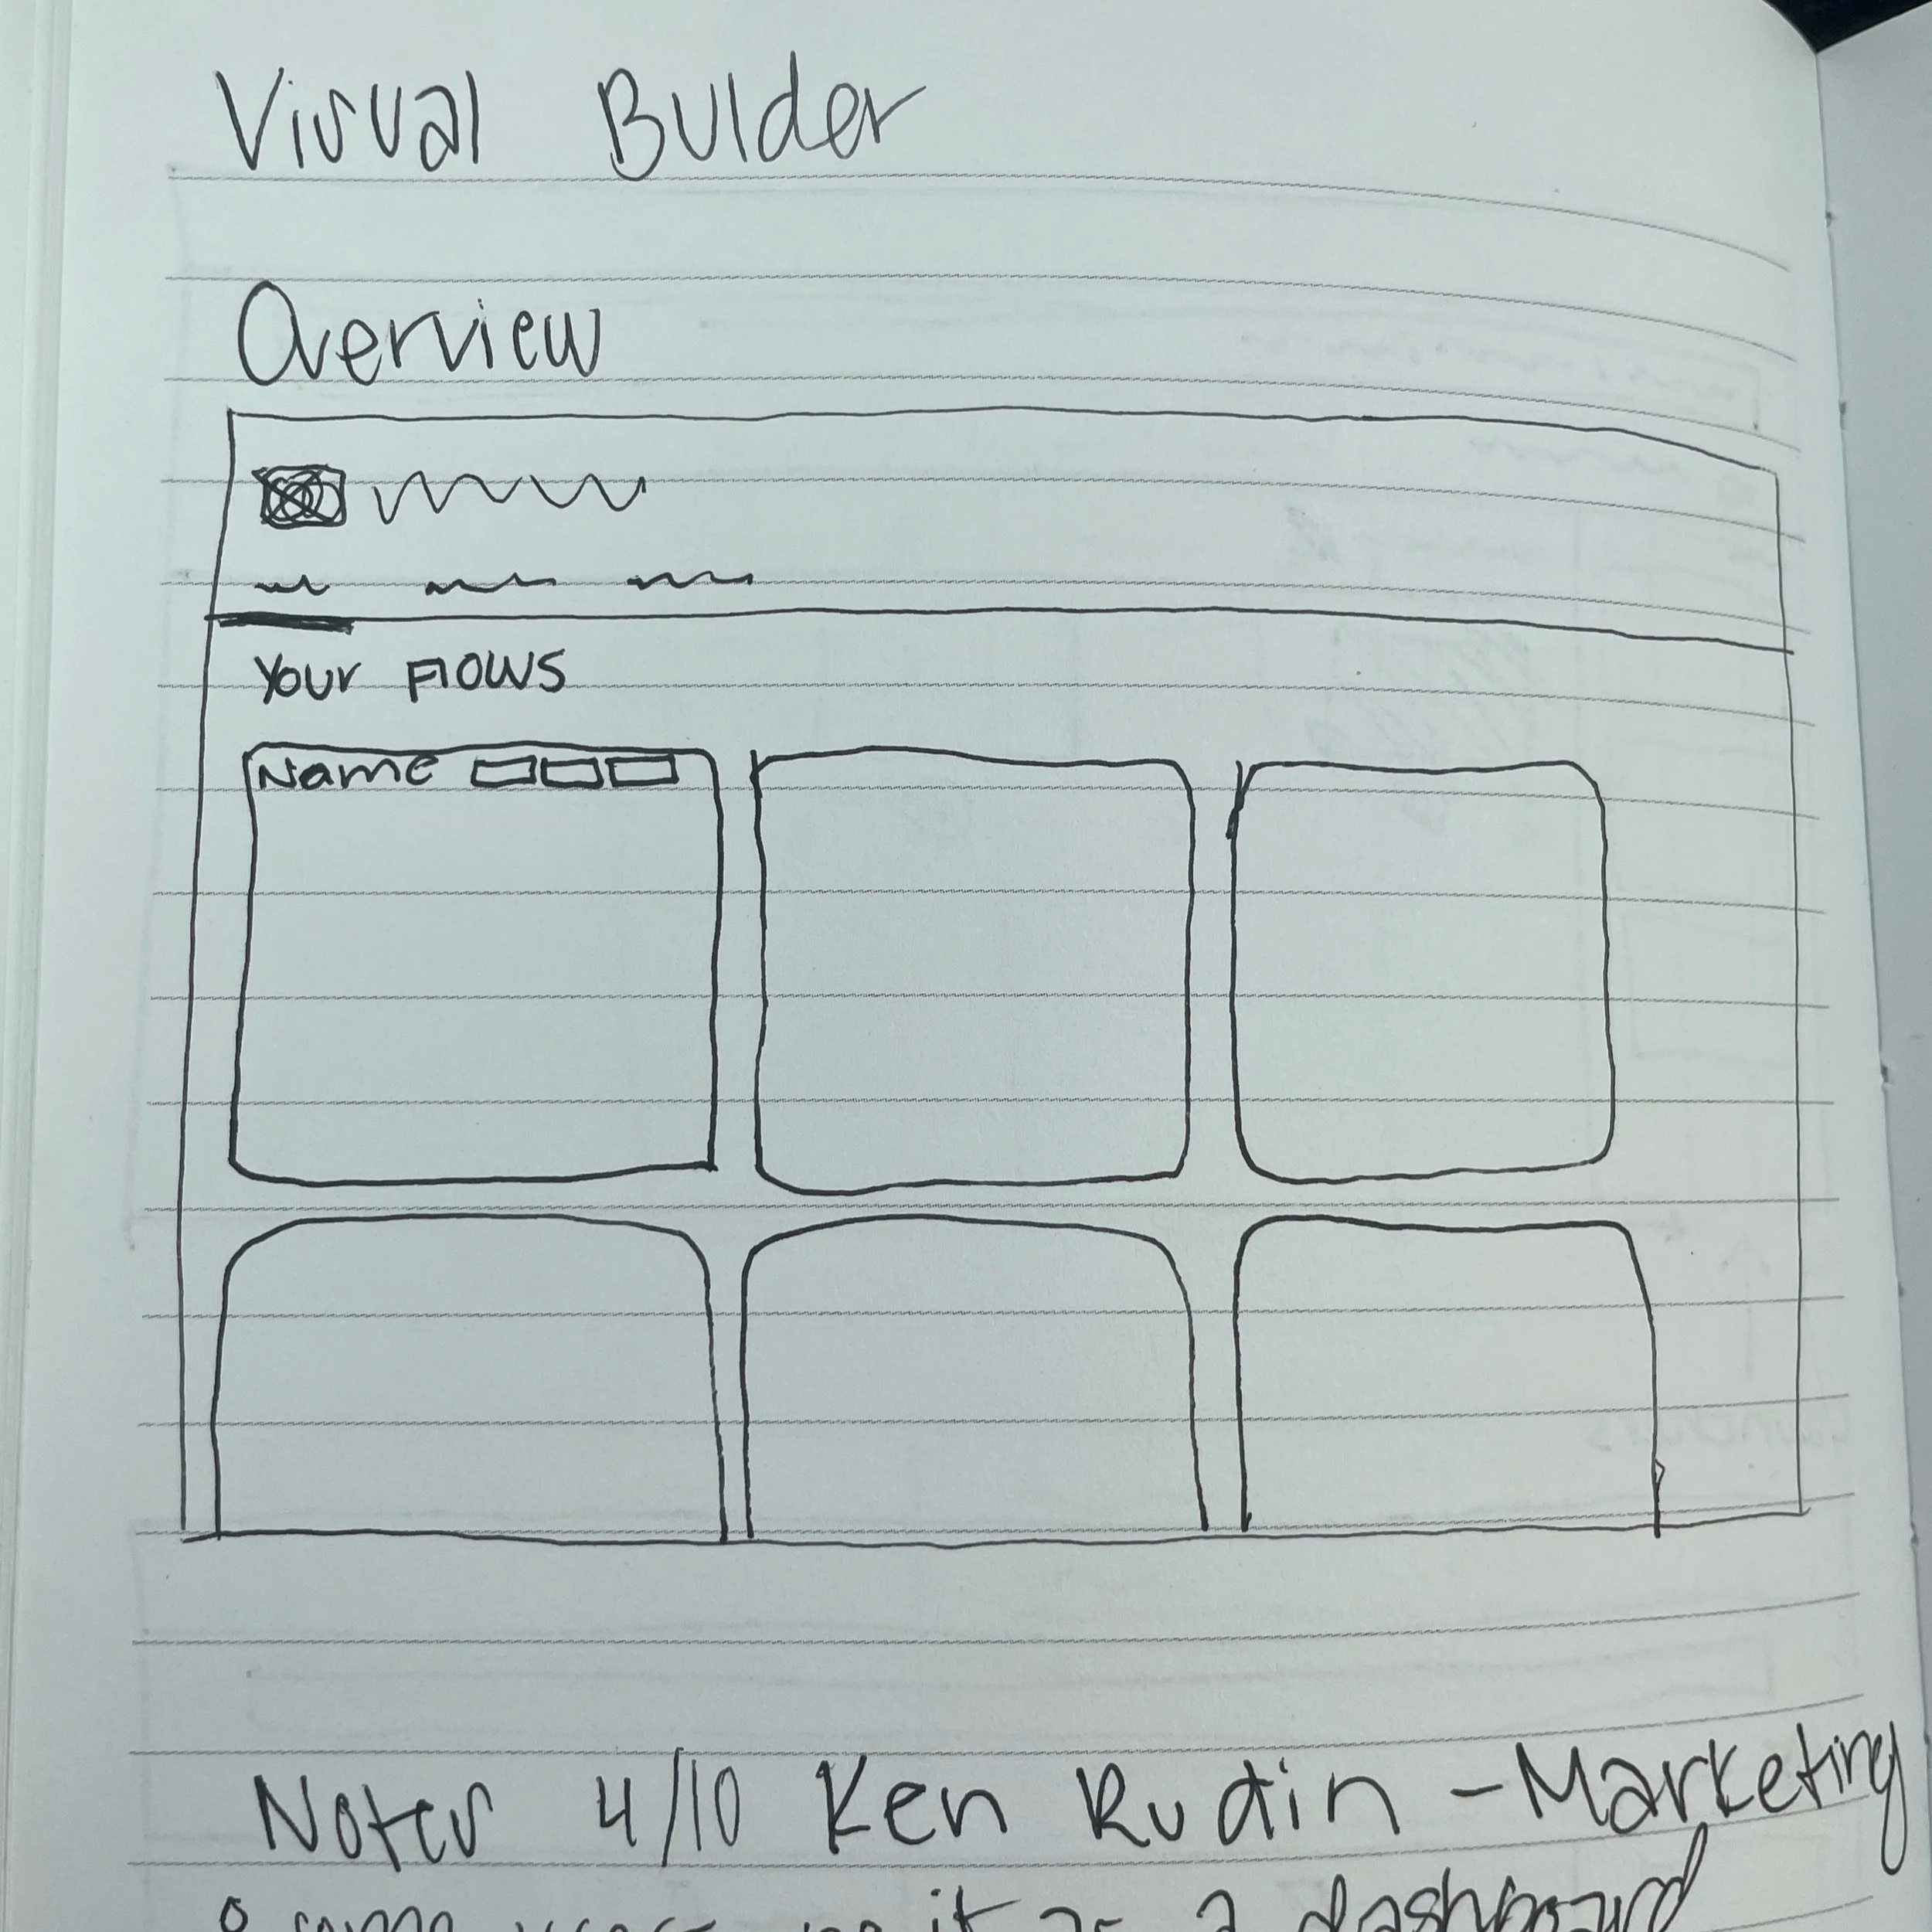 Visual Bulder
Overview
Your Flows
Name
Notes 4/10 Ken Rudin - Marketing
some users use it as a dashboard